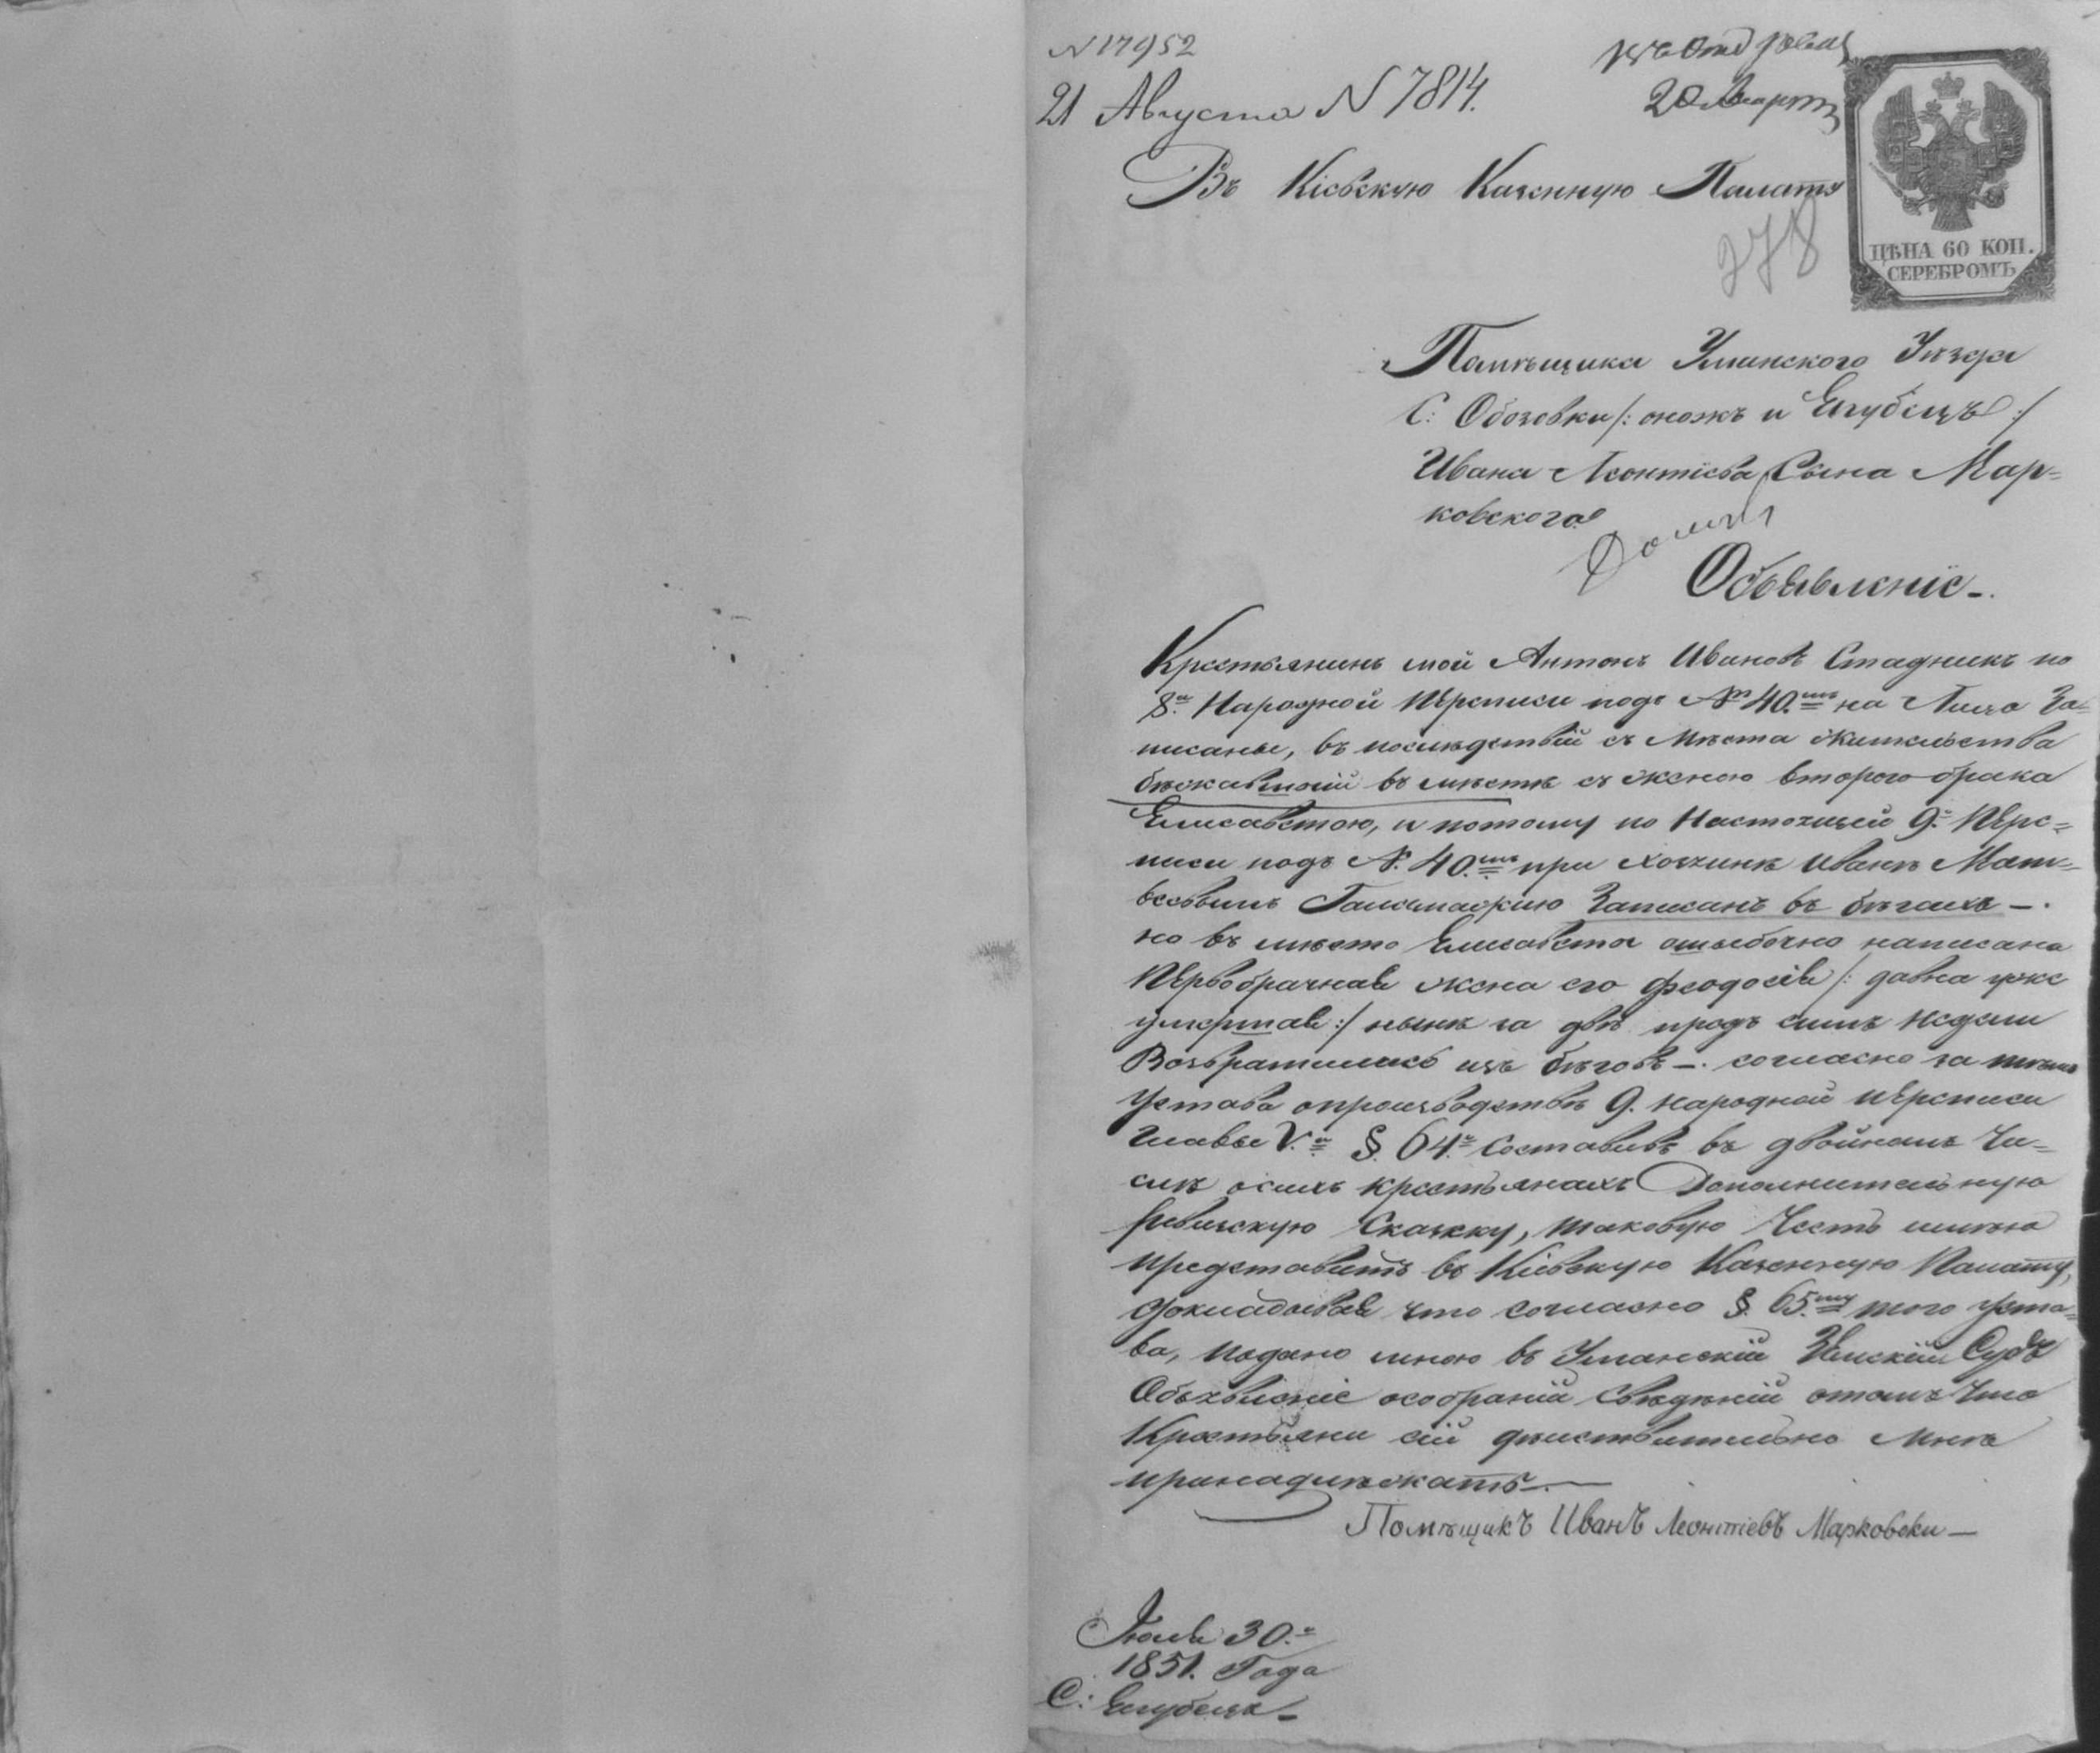 N 17952
20 Марта
21 Августа N 7814.
Въ Кіевскую Казенную Палату
278
ЦѢНА 60 КОП.
СЕРЕБРОМЪ
Помѣщика Уманского Уѣзда
С: Обозовки /: оножъ и Ягубецъ :/
Ивана Леонтіева Сына Мар=
ковского
Объявленіе -.
Крестьянинъ мой Антонъ Ивановъ Стадникъ по
8й Народной Переписи подъ № 40.мъ на Лицо За=
писаны, въ послѣдствій съ Мѣста Жительства
бѣжавшій въ мѣстѣ съ женою второго брака
Елисаветою, и потому по Настоящей 9й Пере=
писи подъ №. 40.мъ при хозяинѣ Иванѣ Мат=
веевымъ Записанъ въ бѣгахъ -.
но въ мѣсто Елисавета ошыбочно написана
Первобрачная жена его Феодосія /: давна уже
умершая :/ нынѣ за двѣ предъ симъ недели
Возвратились изъ бѣговъ -. согласно за
Устава опроизводствѣ 9. народной переписи
Главы V.й §. 64.й Составивъ въ двойномъ Чи=
слѣ осихъ крестьянахъ Дополнительную
Ревизскую Сказку, таковую Честь имѣю
представить въ Кіевскую Казенную Палату,
Докладывая что согласно §. 65.му того Уста=
ва, подано мною въ Уманскій Земскій Судъ
Объявленіе особраніи Свѣденій отомъ Что
Крестьяни сіи действительно Мнѣ
принадлежатъ -.
Помѣщикъ Иванъ Леонтіевъ Марковски -
Июля 30.о
1851. Года
С: Ягубецъ -